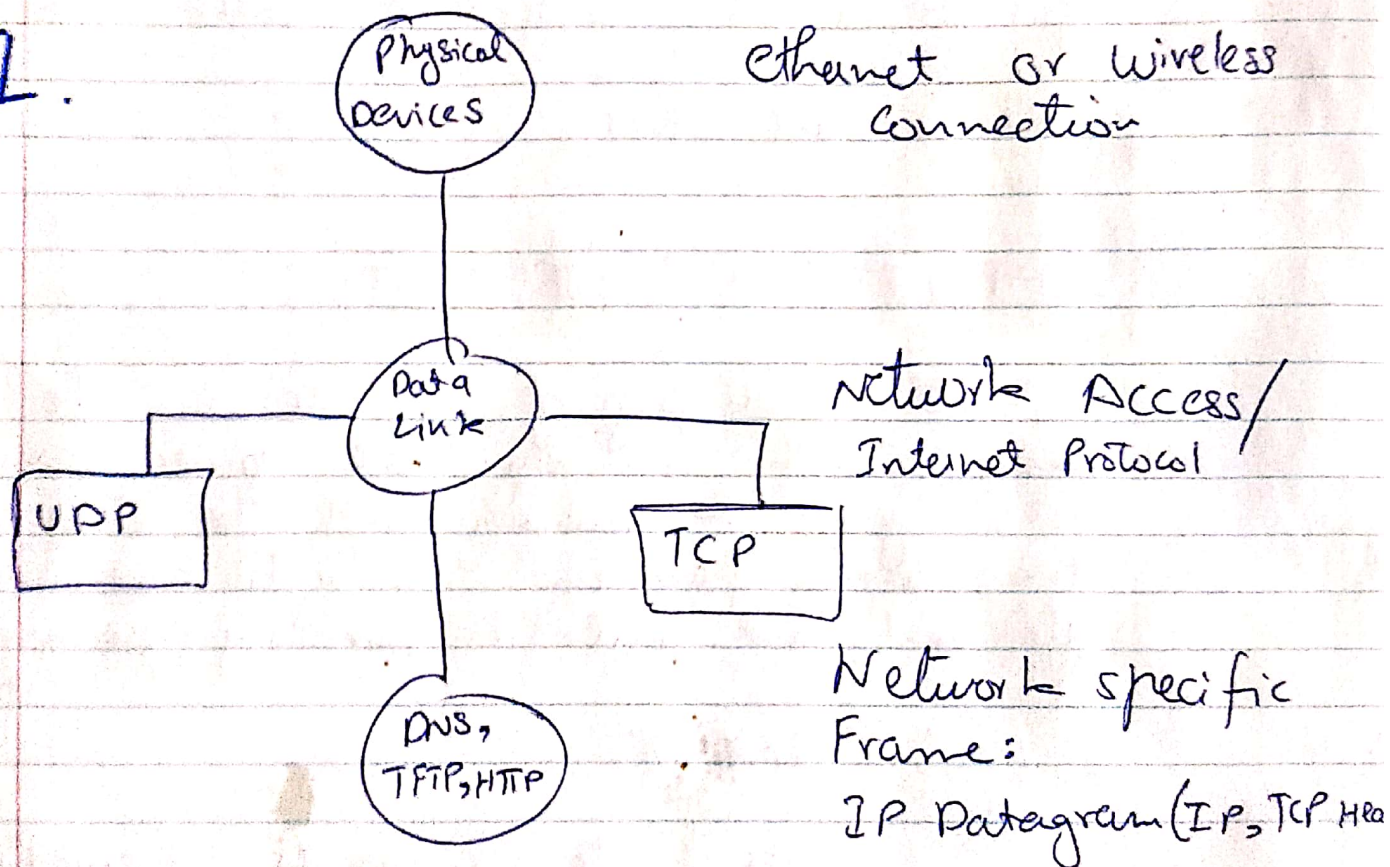 1.
Physical
Devices
Ethernet or Wireless
Connection
Data
Link
Network Access/
Internet Protocol
UDP
TCP
Network specific
Frame:
DNS,
TFTP, HTTP
IP Datagram (IP, TCP Hea